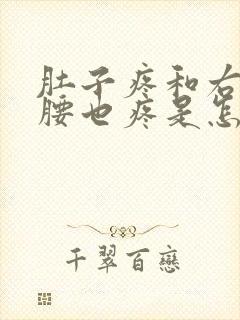 肚子疼和右
腰也疼是怎
千翠百恋